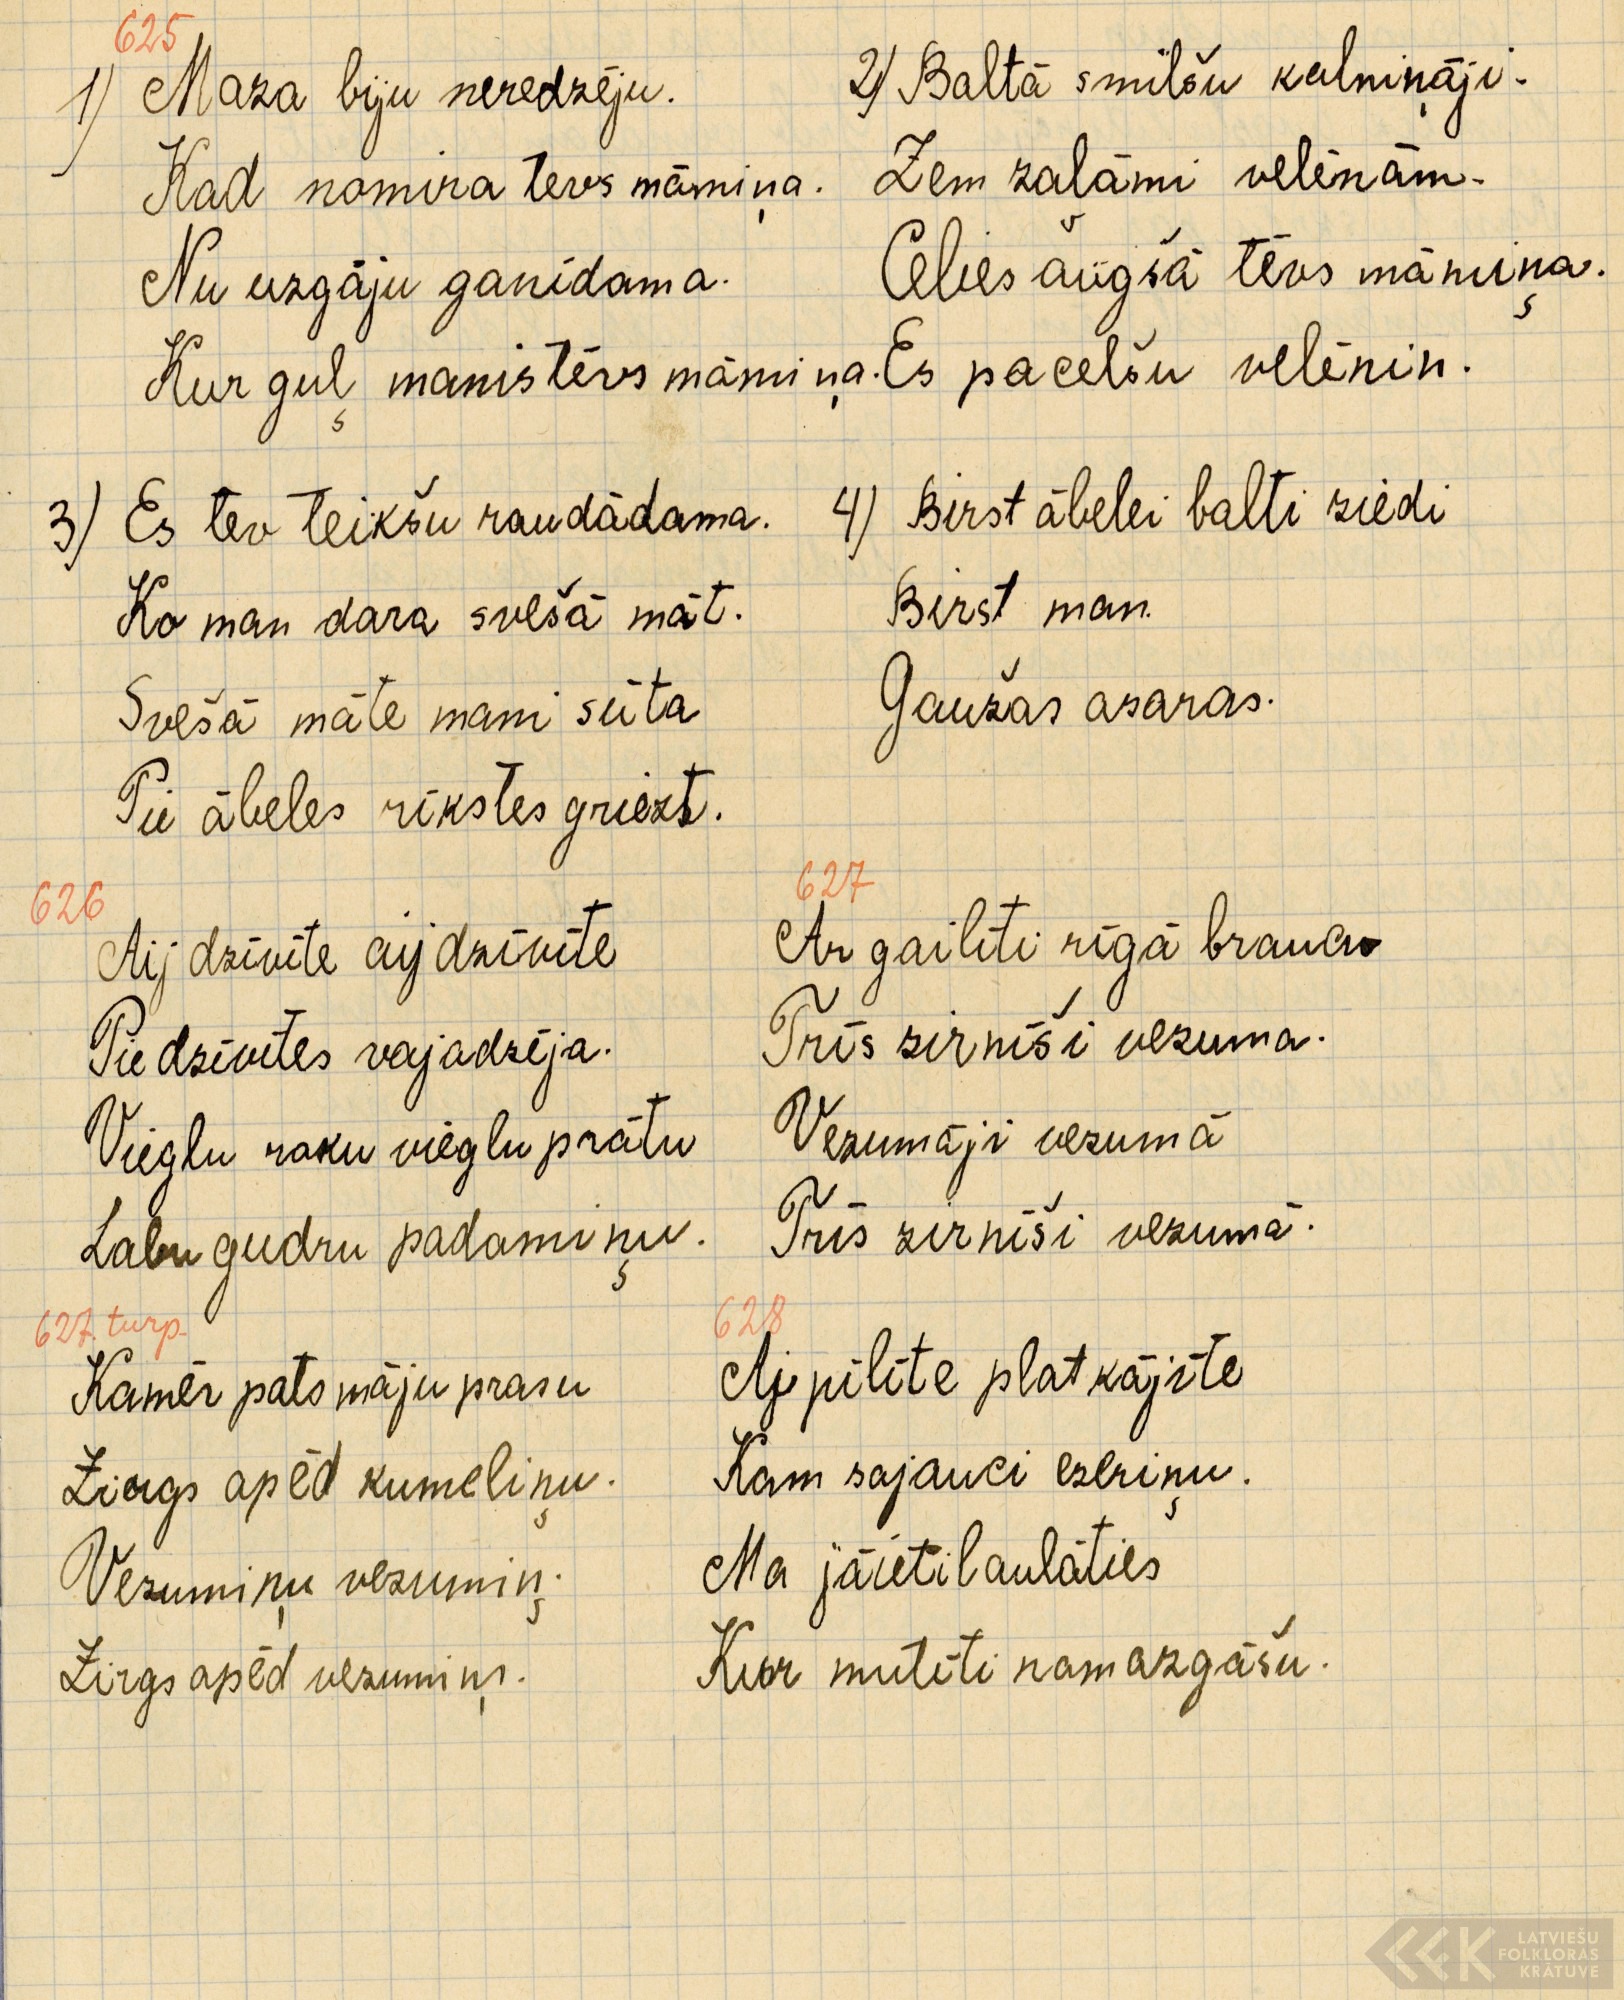 625
1) Maza biju neredzēju.
Kad nomira tevs māmiņa.
Nu uzgāju ganīdama.
Kur guļ manis tēvs māmiņa.
2) Baltā smilšu kalniņāji.
Zem zalāmi velēnām.
Celies augšā tēvs māmiņa.
Es pacelšu velēnin.
3) Es tev teikšu raudādama.
Ko man dara svešā māt.
Svešā māte mani sūta
Pie ābeles rīkstes griezt.
4) Birst ābelei balti ziedi
Birst man
Gaužas asaras.
626
Aij dzīvīte aij dzīvīte
Pie dzīvītes vajadzēja.
Vieglu roku vieglu prātu
Labu gudru padomiņu.
627
Ar gailīti rīgā braucu
Trīs zirnīši vezuma.
Vezumāji vezumā
Trīs zirnīši vezumā.
627. turp.
Kamēr pats māju prasu
Zirgs apēd kumeliņu.
Vezumiņu vezumiņ.
Zirgs apēd vezumiņ.
628
Aj pīlīte plat kājīte
Kam sajauci ezeriņu.
Ma jāieti laulāties
Kur mutīti nomazgāšu.
LATVIEŠU
FOLKLORAS
KRĀTUVE